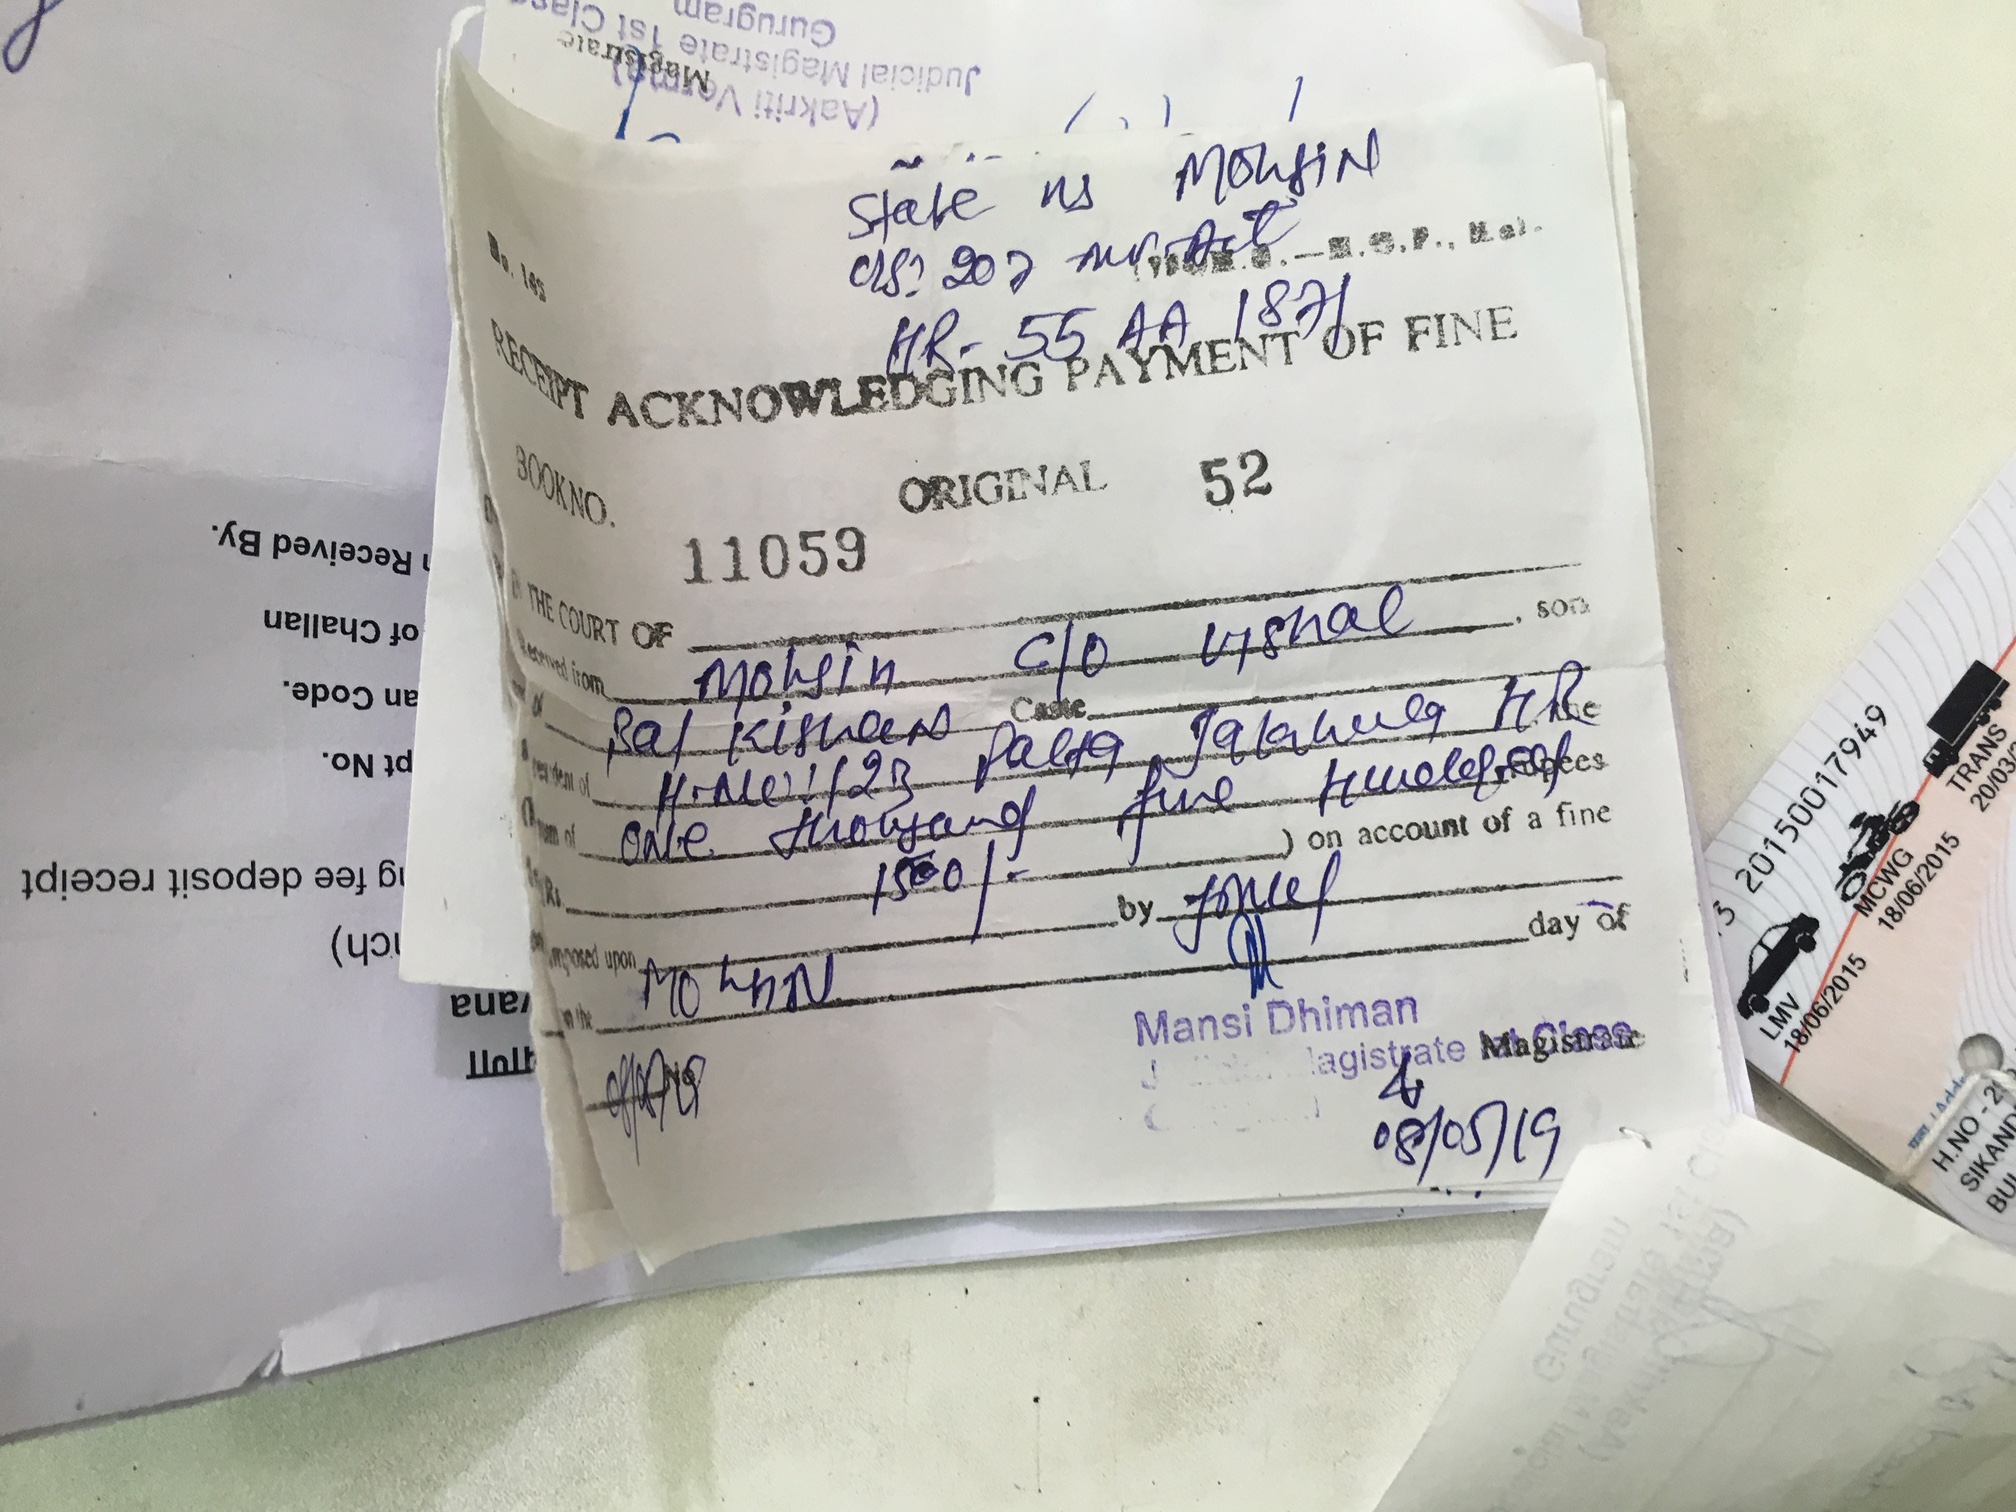 Gurugram
Judicial Magistrate 1st Class
Magistrate
(Aakriti Verma)
State vs Mohsin
U/s: 207 MV Act
HR- 55 AA 1871
RECEIPT ACKNOWLEDGING PAYMENT OF FINE
BOOK NO.
ORIGINAL 52
11059
THE COURT OF
Received from Mohsin C/O Vishal , son
of Raj Kishan Caste
resident of H.No: 123 HR
sum of one thousand five Hundred Rupees
Rs. 1500/- ) on account of a fine
imposed upon Mohsin by
in the day of
Mansi Dhiman
Magistrate 1st Class
Magistrate
08/05/19
n Received By.
of Challan
an Code.
pt No.
ng fee deposit receipt
nch)
yana
20150017949
TRANS
20/03/
MCWG
18/06/2015
LMV
18/06/2015
H.NO - 2
SIKAND
BUL
Gurugram